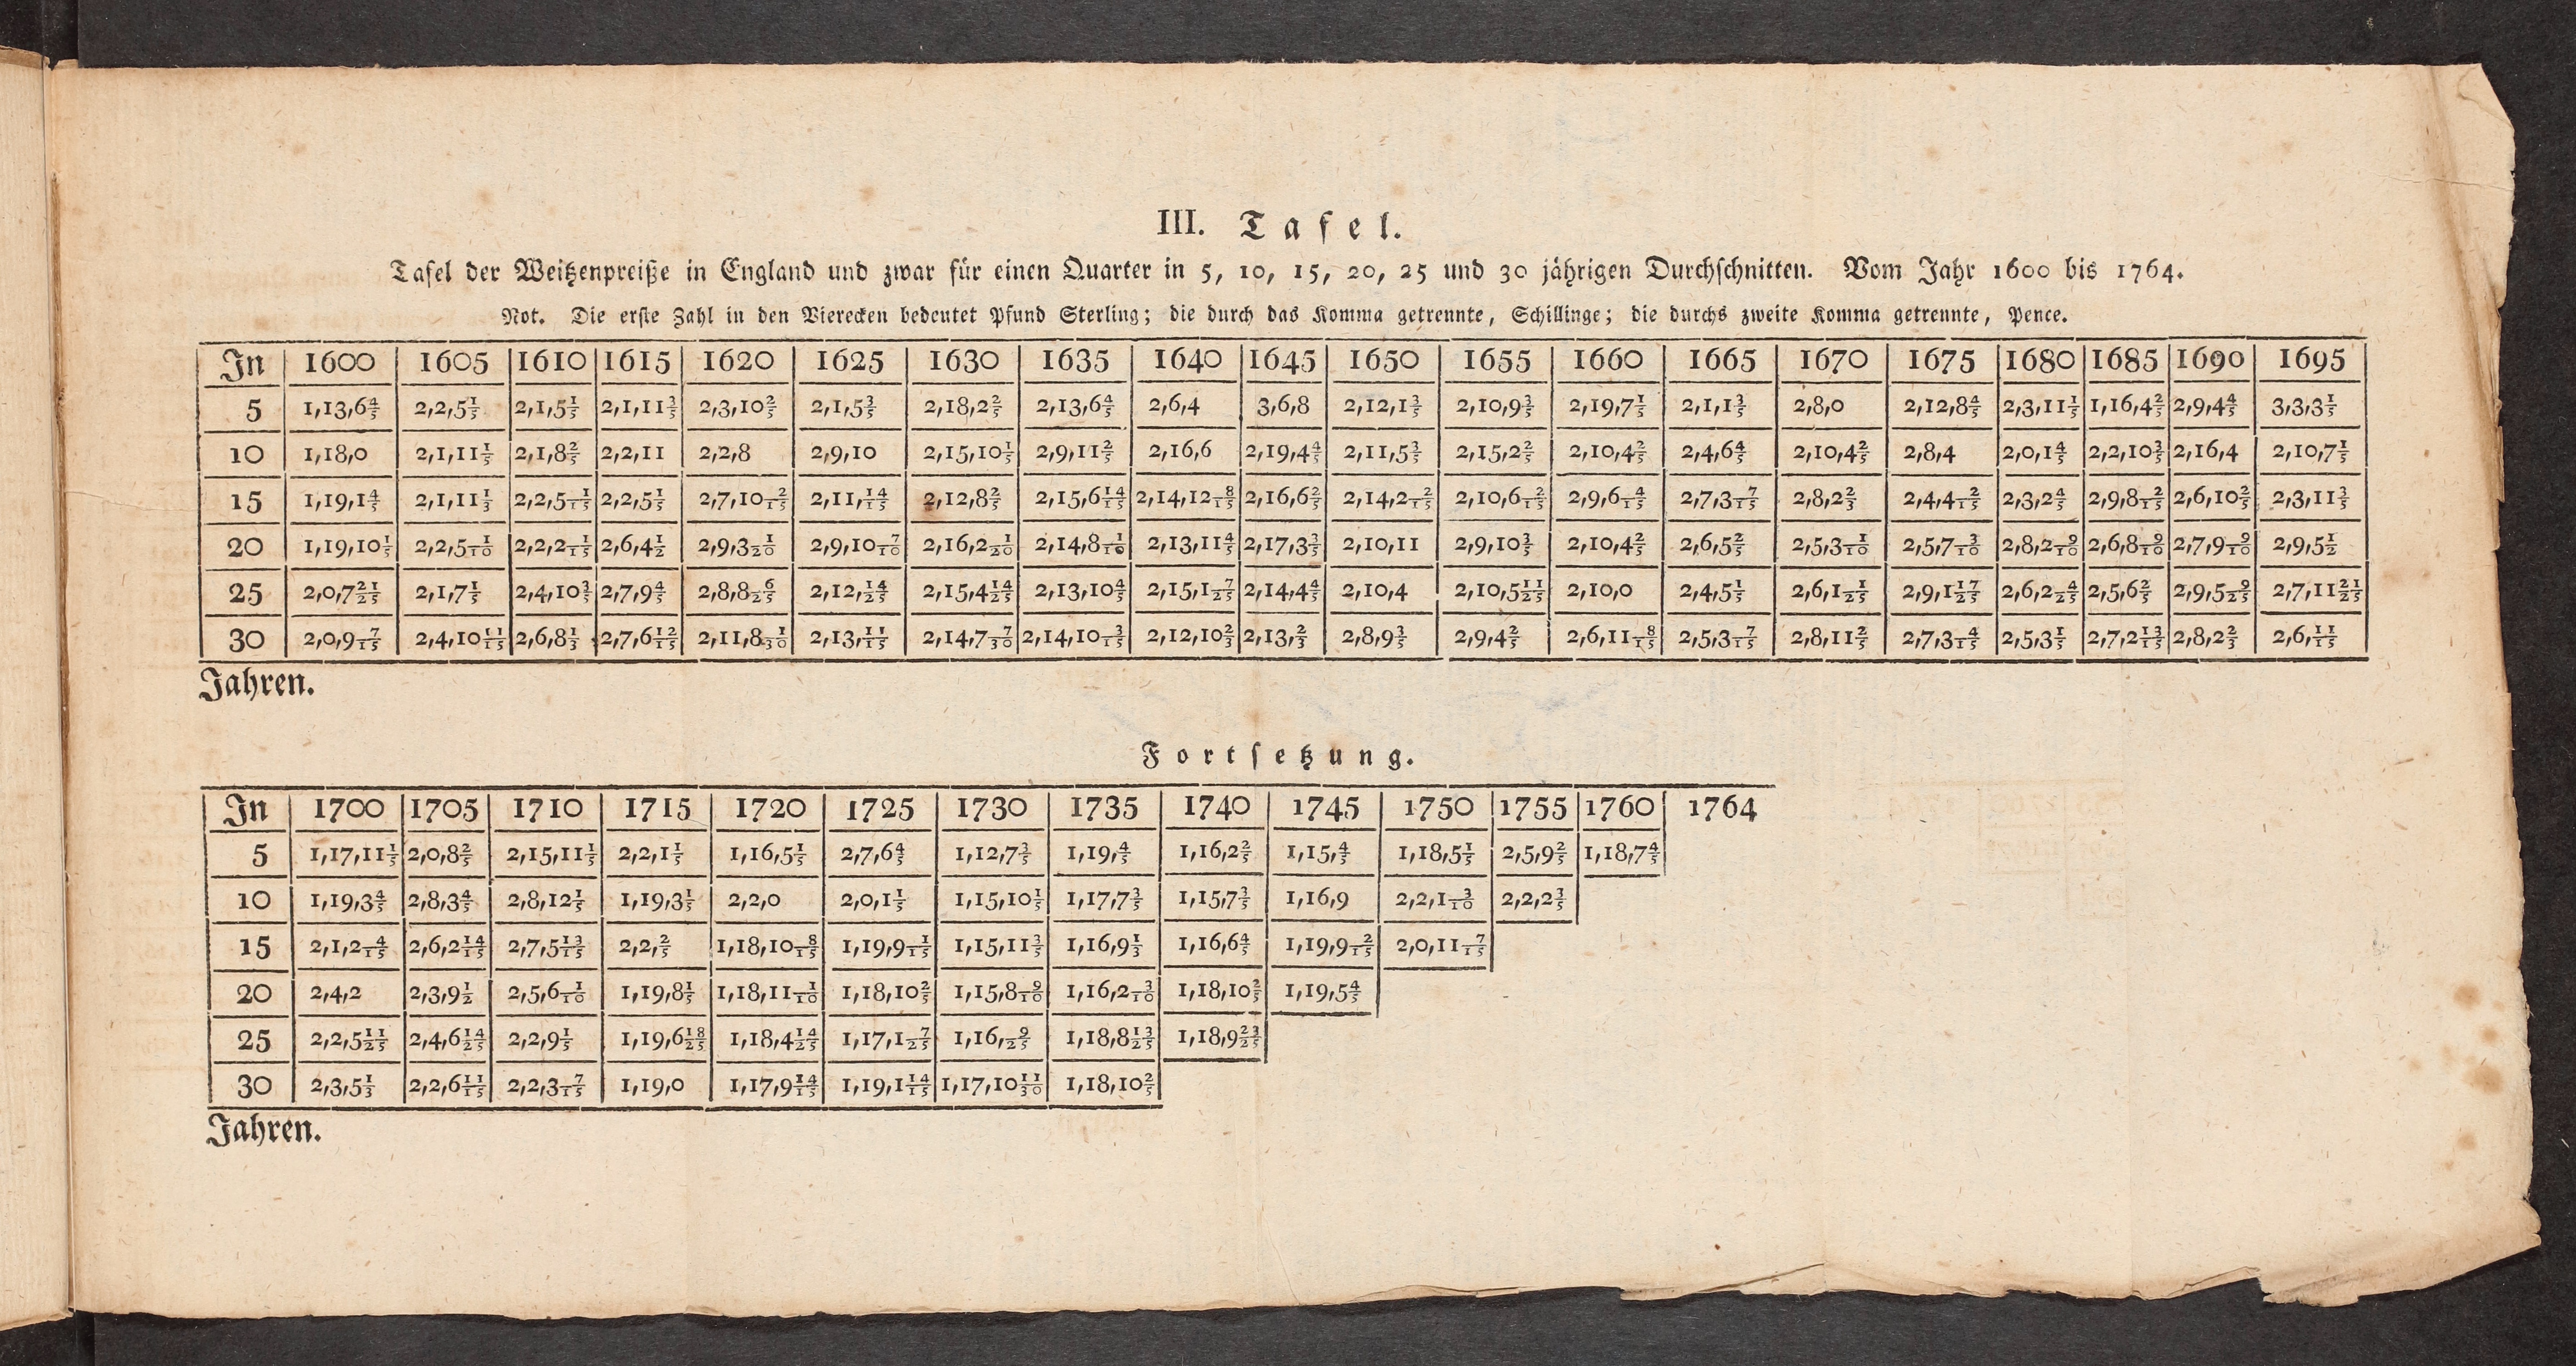 III. Tafel.
Tafel der Weitzenpreiße in England und zwar für einen Quarter in 5, 10, 15, 20, 25 und 30 jährigen Durchschnitten. Vom Jahr 1600 bis 1764.
Not. Die erste Zahl in den Vierecken bedeutet Pfund Sterling; die durch das Komma getrennte, Schillinge; die durchs zweite Komma getrennte, Pence.
In 1600 1605 1610 1615 1620 1625 1630 1635 1640 1645 1650 1655 1660 1665 1670 1675 1680 1685 1690 1695
5 1,13,6 4/5 2,2,5 1/5 2,1,5 1/5 2,1,11 3/5 2,3,10 2/5 2,1,5 3/5 2,18,2 2/5 2,13,6 4/5 2,6,4 3,6,8 2,12,1 3/5 2,10,9 3/5 2,19,7 1/5 2,1,1 3/5 2,8,0 2,12,8 4/5 2,3,11 1/5 1,16,4 2/5 2,9,4 4/5 3,3,3 1/5
10 1,18,0 2,1,11 1/5 2,1,8 2/5 2,2,11 2,2,8 2,9,10 2,15,10 1/5 2,9,11 2/5 2,16,6 2,19,4 4/5 2,11,5 3/5 2,15,2 2/5 2,10,4 2/5 2,4,6 4/5 2,10,4 2/5 2,8,4 2,0,1 4/5 2,2,10 3/5 2,16,4 2,10,7 1/5
15 1,19,1 4/5 2,1,11 1/3 2,2,5 1/15 2,2,5 1/5 2,7,10 2/15 2,11, 14/15 2,12,8 2/5 2,15,6 14/15 2,14,12 8/15 2,16,6 2/5 2,14,2 2/15 2,10,6 2/15 2,9,6 4/15 2,7,3 7/15 2,8,2 2/3 2,4,4 2/15 2,3,2 4/5 2,9,8 2/15 2,6,10 2/5 2,3,11 3/5
20 1,19,10 1/5 2,2,5 1/10 2,2,2 1/15 2,6,4 1/2 2,9,3 1/20 2,9,10 7/10 2,16,2 1/20 2,14,8 1/10 2,13,11 4/5 2,17,3 3/5 2,10,11 2,9,10 3/5 2,10,4 2/5 2,6,5 2/5 2,5,3 1/10 2,5,7 3/10 2,8,2 9/10 2,6,8 9/10 2,7,9 9/10 2,9,5 1/2
25 2,0,7 21/25 2,1,7 1/5 2,4,10 3/5 2,7,9 4/5 2,8,8 6/25 2,12, 14/25 2,15,4 14/25 2,13,10 4/5 2,15,1 7/25 2,14,4 4/5 2,10,4 2,10,5 11/25 2,10,0 2,4,5 1/5 2,6,1 1/25 2,9,1 17/25 2,6,2 4/25 2,5,6 2/5 2,9,5 9/25 2,7,11 21/25
30 2,0,9 7/15 2,4,10 11/15 2,6,8 1/3 2,7,6 12/15 2,11,8 1/30 2,13, 11/15 2,14,7 7/30 2,14,10 3/15 2,12,10 2/3 2,13, 2/3 2,8,9 3/5 2,9,4 2/5 2,6,11 8/15 2,5,3 7/15 2,8,11 2/5 2,7,3 4/15 2,5,3 1/5 2,7,2 13/15 2,8,2 2/3 2,6, 11/15
Jahren.
Fortsetzung.
In 1700 1705 1710 1715 1720 1725 1730 1735 1740 1745 1750 1755 1760 1764
5 1,17,11 1/5 2,0,8 2/5 2,15,11 1/5 2,2,1 1/5 1,16,5 1/5 2,7,6 4/5 1,12,7 3/5 1,19, 4/5 1,16,2 2/5 1,15, 4/5 1,18,5 1/5 2,5,9 2/5 1,18,7 4/5
10 1,19,3 4/5 2,8,3 4/5 2,8,12 1/5 1,19,3 1/5 2,2,0 2,0,1 1/5 1,15,10 1/5 1,17,7 3/5 1,15,7 3/5 1,16,9 2,2,1 3/10 2,2,2 3/5
15 2,1,2 4/15 2,6,2 14/15 2,7,5 13/15 2,2, 2/5 1,18,10 8/15 1,19,9 1/15 1,15,11 3/5 1,16,9 1/3 1,16,6 4/5 1,19,9 2/15 2,0,11 7/15
20 2,4,2 2,3,9 1/2 2,5,6 1/10 1,19,8 1/5 1,18,11 1/10 1,18,10 2/5 1,15,8 9/10 1,16,2 3/10 1,18,10 2/5 1,19,5 4/5
25 2,2,5 11/25 2,4,6 14/25 2,2,9 1/5 1,19,6 18/25 1,18,4 14/25 1,17,1 7/25 1,16, 9/25 1,18,8 13/25 1,18,9 23/25
30 2,3,5 1/3 2,2,6 11/15 2,2,3 7/15 1,19,0 1,17,9 14/15 1,19,1 14/15 1,17,10 11/30 1,18,10 2/5
Jahren.